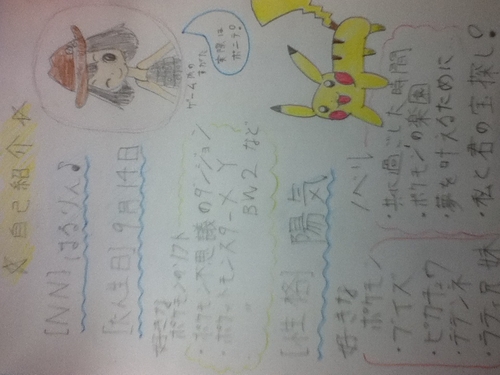 ☆自己紹介☆
[NN] はるりん♪
[たん生日] 9月14日
ゲーム内の
すがた
実際は
ポニテ。
好きな
ポケモンのソフト
・ポケモン不思議のダンジョン
・ポケットモンスターXY
BW2 など
[性格] 陽気
好きな
ポケモン
・ブイズ
・ピカチュウ
・ラティ兄妹
ノベル
・共に過ごした時間
・ポケモンの楽園
・夢を叶えるために
・私と君の宝探し。